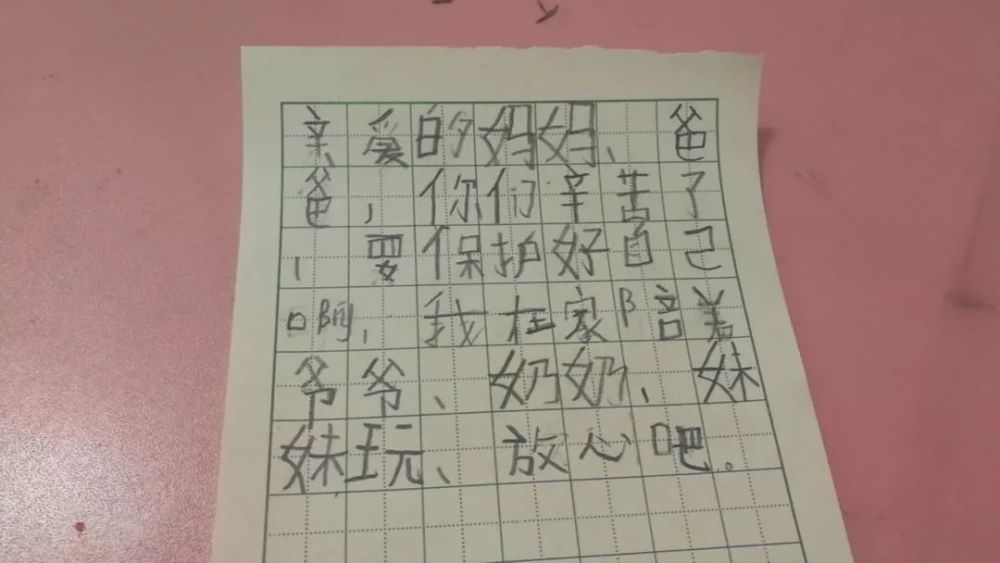 亲爱的妈妈、爸
爸，你们辛苦了
，要保护好自己
啊，我在家陪着
爷爷、奶奶、妹
妹玩、放心吧。